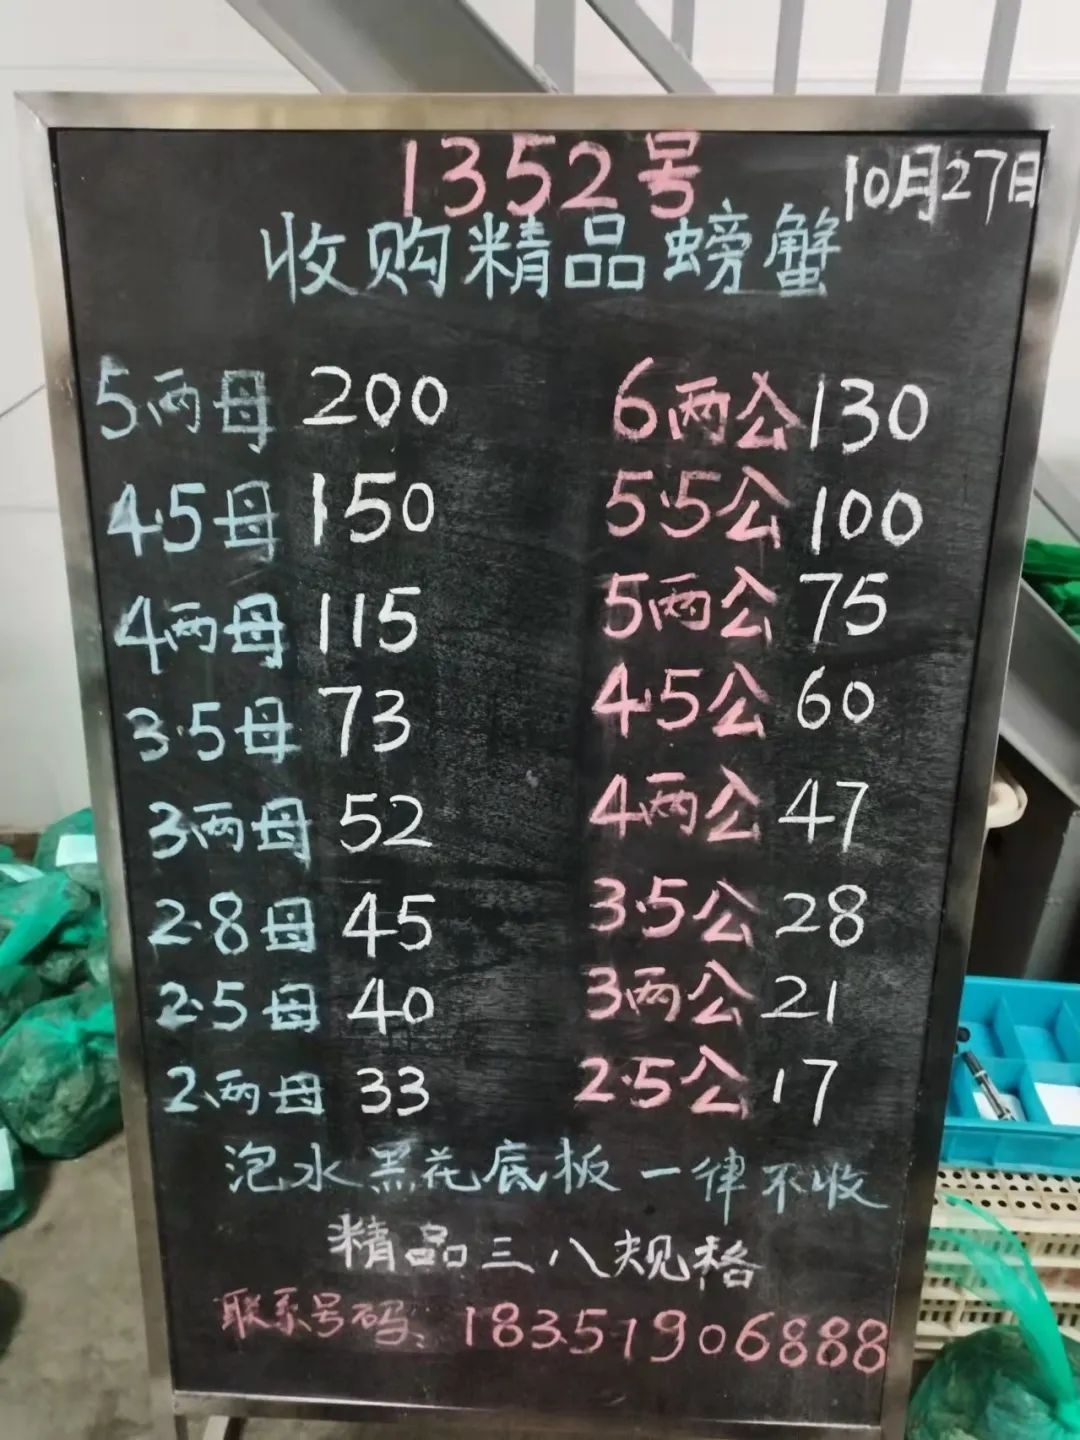 1352号
10月27日
收购精品螃蟹
5两母 200
4.5母 150
4两母 115
3.5母 73
3两母 52
2.8母 45
2.5母 40
2两母 33
6两公 130
5.5公 100
5两公 75
4.5公 60
4两公 47
3.5公 28
3两公 21
2.5公 17
泡水黑花底板一律不收
精品三八规格
联系号码：18351906888